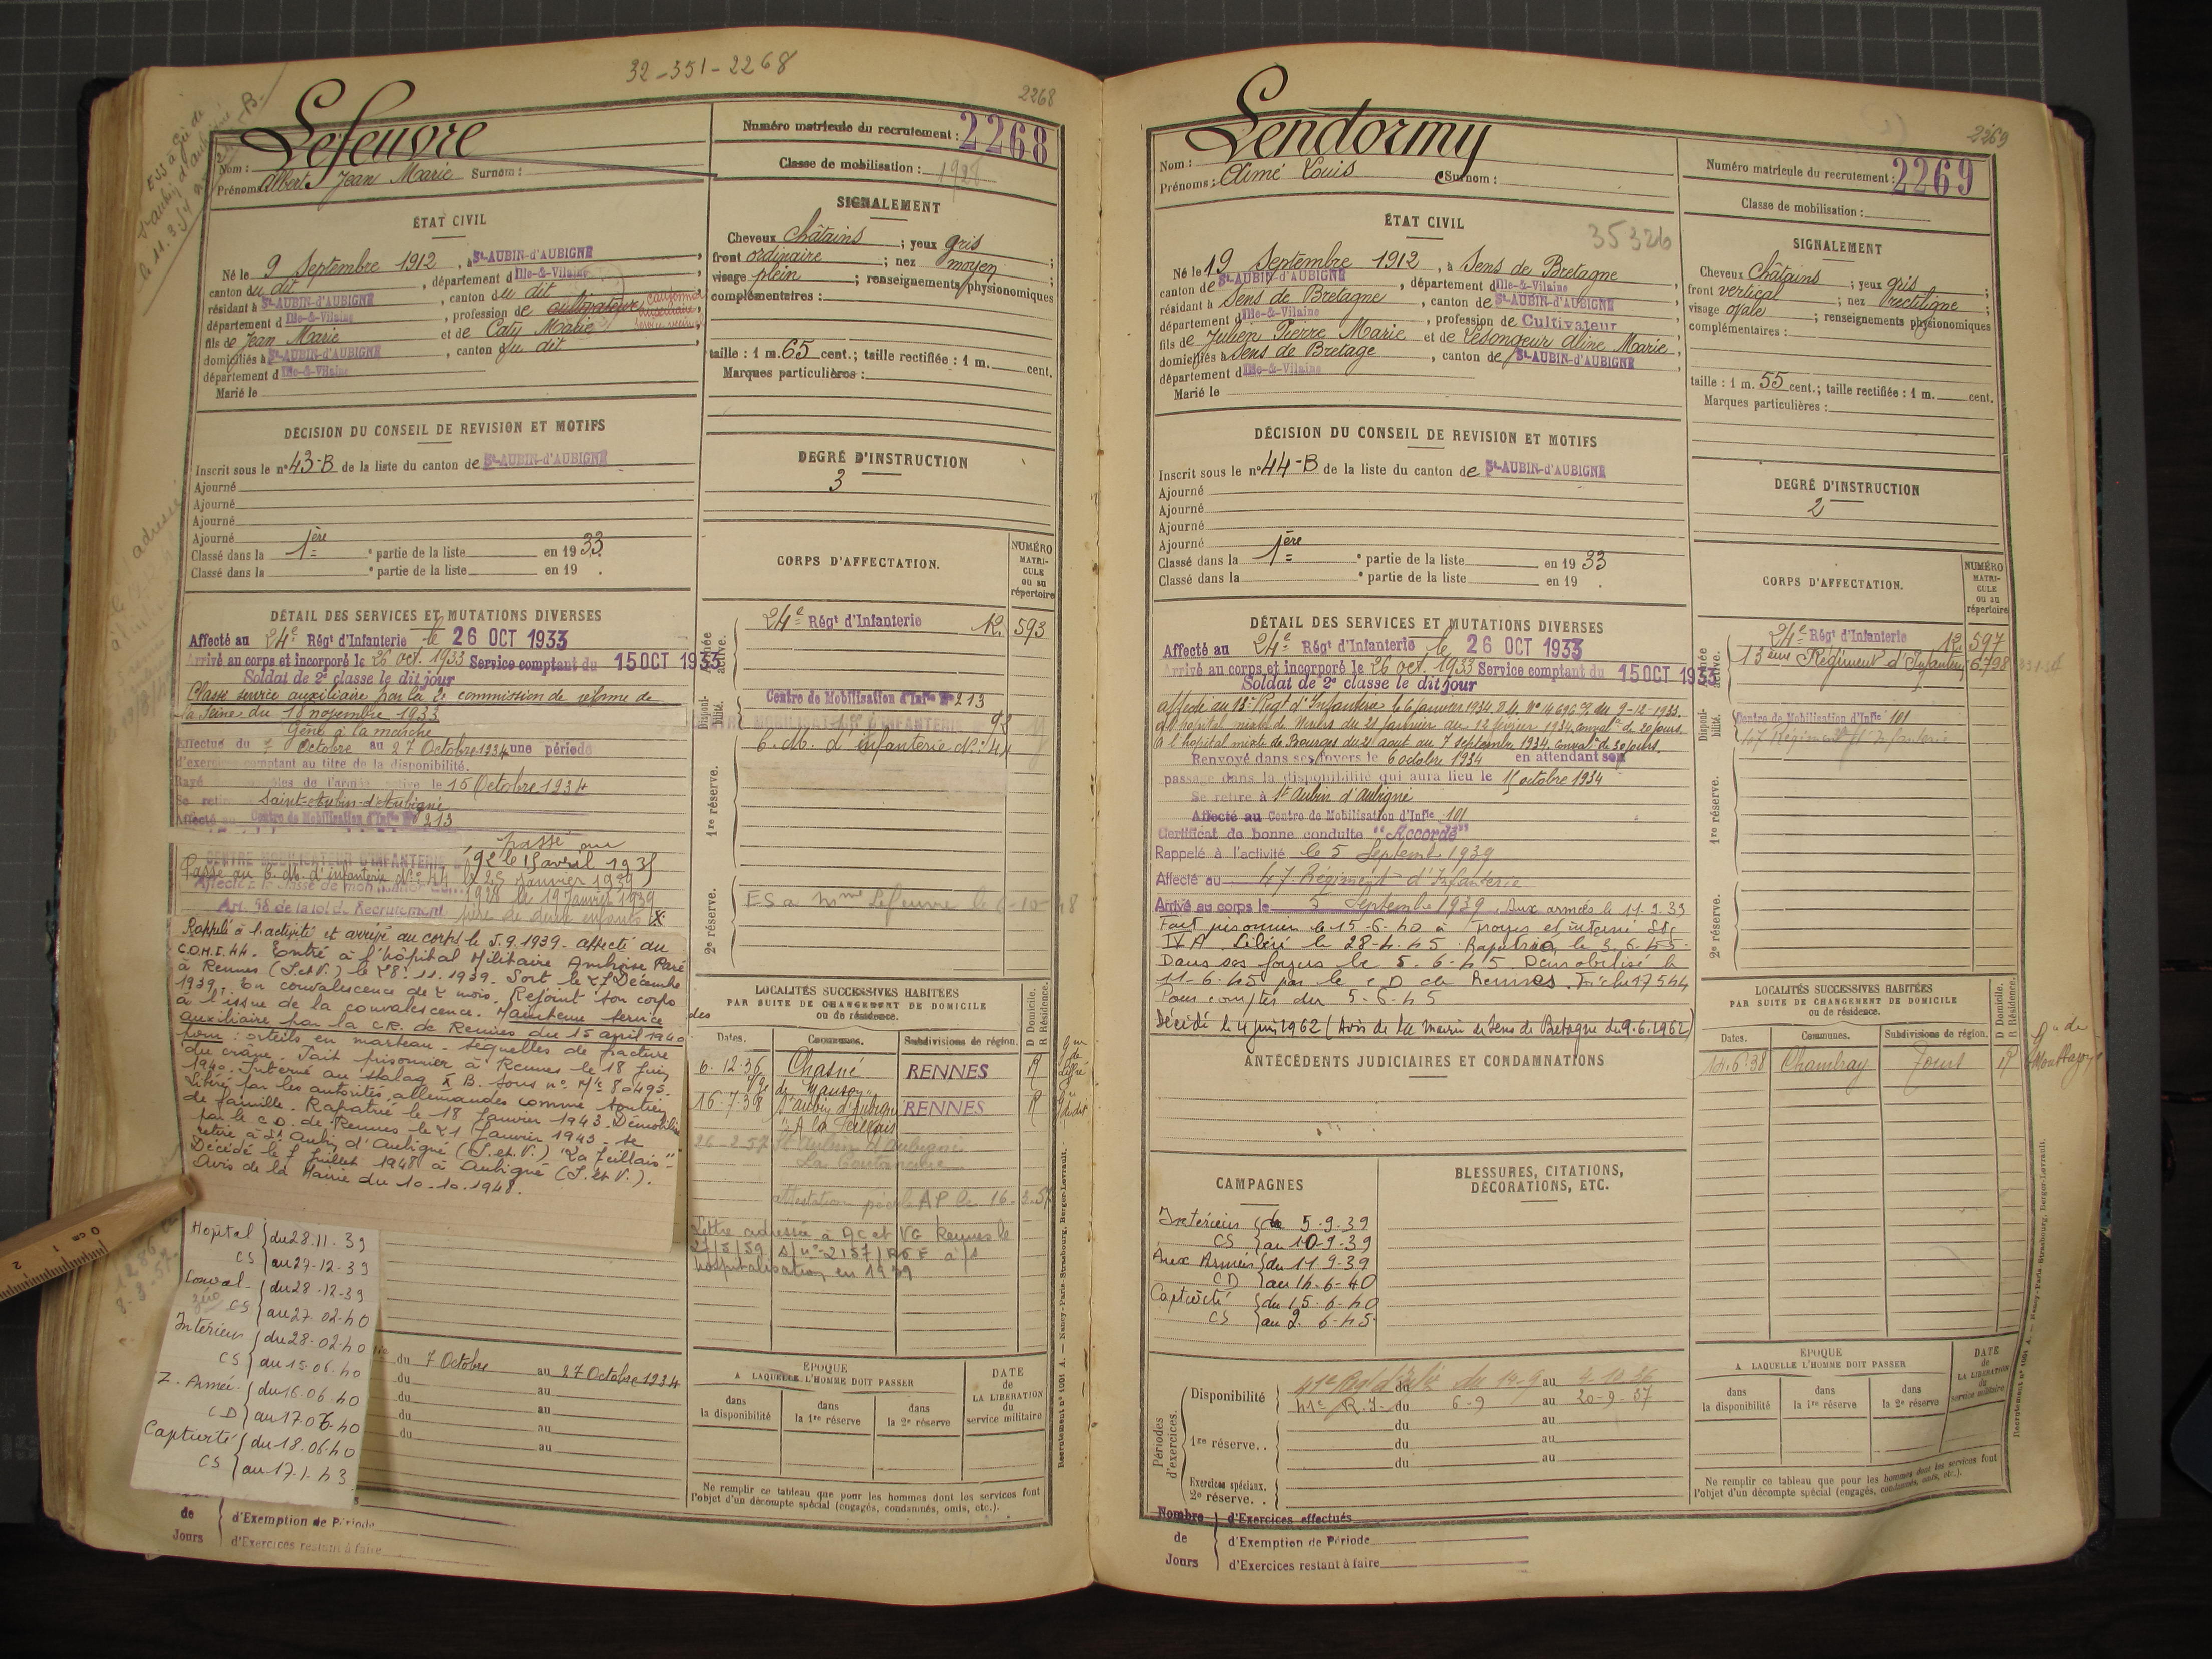 32-351-2268
2268
Lefeuvre
Nom :
Prénoms : Albert Jean Marie Surnom :
Numéro matricule du recrutement : 2268
Classe de mobilisation : 1928
ÉTAT CIVIL
Né le 9 Septembre 1912, à St-AUBIN-d'AUBIGNÉ,
canton du dit, département d'Ille-&-Vilaine,
résidant à St-AUBIN-d'AUBIGNÉ, canton du dit,
département d'Ille-&-Vilaine, profession de cultivateur
fils de Jean Marie et de Caty Marie
domiciliés à St-AUBIN-d'AUBIGNÉ, canton du dit,
département d'Ille-&-Vilaine
Marié le
SIGNALEMENT
Cheveux châtains ; yeux gris ;
front ordinaire ; nez moyen ;
visage plein ; renseignements physionomiques
complémentaires :
taille : 1 m. 65 cent.; taille rectifiée : 1 m. cent.
Marques particulières :
DÉCISION DU CONSEIL DE REVISION ET MOTIFS
Inscrit sous le n° 43-B de la liste du canton de St-AUBIN-d'AUBIGNÉ
Ajourné
Ajourné
Ajourné
Ajourné
Classé dans la 1ère partie de la liste en 1933.
Classé dans la e partie de la liste en 19 .
DEGRÉ D'INSTRUCTION
3
DÉTAIL DES SERVICES ET MUTATIONS DIVERSES
Affecté au 24e Régt d'Infanterie le 26 OCT 1933
Arrivé au corps et incorporé le 26 oct. 1933 Service comptant du 15 OCT 1933
Soldat de 2e classe le dit jour
Classé service auxiliaire par la 2e commission de réforme de
la Seine du 18 novembre 1933
Gêne à la marche
Effectué du 7 Octobre au 27 Octobre 1934 une période
d'exercices comptant au titre de la disponibilité.
Rayé des contrôles de l'armée active le 15 Octobre 1934
Se retire Saint-Aubin-d'Aubigné
Affecté au Centre de Mobilisation d'Infie N° 213
passé au
CENTRE MOBILISATEUR D'INFANTERIE N° 92 le 15 avril 1935
Passé au C. M. d'infanterie N° 44 le 25 janvier 1939
Affecté à la classe de mobilisation 1928 le 19 Janvier 1939
Art. 58 de la loi de Recrutement père de deux enfants
Rappelé à l'activité et arrivé au corps le 5.9.1939 - affecté au
C.O.M.I. 44. Entré à l'hôpital Militaire Ambroise Paré
à Rennes (I. et V.) le 28.11.1939. Sort le 27 Décembre
1939. En convalescence de 2 mois. Rejoint son corps
à l'issue de la convalescence. Maintenu service
auxiliaire par la C.R. de Rennes du 15 april 1940
pour : orteils en marteau - séquelles de fracture
du crâne. Fait prisonnier à Rennes le 18 juin
1940. Interné au stalag X B. sous n° Mle 80495.
Libéré par les autorités allemandes comme soutien
de famille. Rapatrié le 18 Janvier 1943. Démobilisé
par le C.D. de Rennes le 21 Janvier 1943 - se
retire à St Aubin d'Aubigné (I. et V.)
Décédé le 7 Juillet 1948 à Aubigné (I. et V.).
Avis de la Mairie du 10.10.1948.
Hôpital du 28.11.39
CS au 27-12-39
Conval. du 28-12-39
CS au 27.02-40
Intérieur du 28-02-40
CS au 15.06.40
Z. Armée du 16.06.40
CD au 17.06.40
Captivité du 18.06.40
CS au 17-1-43
du 7 Octobre au 27 Octobre 1934
du au
du au
du au
du au
de d'Exemption de Période
Jours d'Exercices restant à faire
CORPS D'AFFECTATION.
NUMÉRO MATRICULE ou au répertoire
Armée active.
24e Régt d'Infanterie 12. 593
Disponibilité.
Centre de Mobilisation d'Infie N° 213
CENTRE MOBILISATEUR D'INFANTERIE 92
C. M. d'infanterie N° 44
1re réserve.
2e réserve.
ES a Mme Lefeuvre le 6-10-48
LOCALITÉS SUCCESSIVES HABITÉES
PAR SUITE DE CHANGEMENT DE DOMICILE
ou de résidence.
D Domicile. R Résidence.
Dates. Communes. Subdivisions de région.
6-12-36 Chasné RENNES R
16-7-38 St Aubin d'Aubigné RENNES R
26-2-57 St Aubin d'Aubigné
attestation AP le 16-3-57
Lettre adressée à AC et VG Rennes le
hospitalisation en 1939
ÉPOQUE
A LAQUELLE L'HOMME DOIT PASSER
dans la disponibilité
dans la 1re réserve
dans la 2e réserve
DATE de LA LIBÉRATION du service militaire
Ne remplir ce tableau que pour les hommes dont les services font
l'objet d'un décompte spécial (engagés, condamnés, omis, etc.).
Recrutement n° 1001 A. — Nancy-Paris-Strasbourg, Berger-Levrault.
2269
Lendormy
Nom :
Prénoms : Aimé Louis Surnom :
Numéro matricule du recrutement : 2269
Classe de mobilisation :
ÉTAT CIVIL
35326
Né le 19 Septembre 1912, à Sens de Bretagne
canton de St-AUBIN-d'AUBIGNÉ, département d'Ille-&-Vilaine,
résidant à Sens de Bretagne, canton de St-AUBIN-d'AUBIGNÉ
département d'Ille-&-Vilaine, profession de Cultivateur
fils de Julien Pierre Marie et de Lesongeur Aline Marie,
domiciliés à Sens de Bretage, canton de St-AUBIN-d'AUBIGNÉ
département d'Ille-&-Vilaine
Marié le
SIGNALEMENT
Cheveux châtains ; yeux gris ;
front vertical ; nez rectiligne ;
visage ovale ; renseignements physionomiques
complémentaires :
taille : 1 m. 55 cent.; taille rectifiée : 1 m. cent.
Marques particulières :
DÉCISION DU CONSEIL DE REVISION ET MOTIFS
Inscrit sous le n° 44-B de la liste du canton de St-AUBIN-d'AUBIGNÉ
Ajourné
Ajourné
Ajourné
Ajourné
Classé dans la 1ère partie de la liste en 1933
Classé dans la e partie de la liste en 19 .
DEGRÉ D'INSTRUCTION
2
DÉTAIL DES SERVICES ET MUTATIONS DIVERSES
Affecté au 24e Régt d'Infanterie le 26 OCT 1933
Arrivé au corps et incorporé le 26 oct. 1933 Service comptant du 15 OCT 1933
Soldat de 2e classe le dit jour
affecté au 13e Régt d'Infanterie le 6 janvier 1934 du 9-12-1933.
à l'hôpital mixte de Nevers du 21 janvier au 12 février 1934. convalce de 20 jours.
à l'hôpital mixte de Bourges du 21 aout au 7 septembre 1934. convalce de 30 jours.
Renvoyé dans ses foyers le 6 octobre 1934 en attendant son
passage dans la disponibilité qui aura lieu le 15 octobre 1934
Se retire à St Aubin d'Aubigné
Affecté au Centre de Mobilisation d'Infie 101
Certificat de bonne conduite "Accordé"
Rappelé à l'activité le 5 Septemb 1939
Affecté au 47 Régiment d'Infanterie
Arrivé au corps le 5 Septembre 1939. Aux armées le 11.9.39
Fait prisonnier le 15-6-40 à Troyes et interné Stg
IV A. Libéré le 28-4-45. Rapatrié le 3.6.45-
Dans ses foyers le 5.6-45. Démobilisé le
11-6-45 par le CD de Rennes. Fiche 17544
Pour compter du 5-6-45
Décédé le 4 juin 1962 (Avis de la Mairie de Sens de Bretagne du 9.6.1962)
ANTÉCÉDENTS JUDICIAIRES ET CONDAMNATIONS
CAMPAGNES
Intérieur CS du 5-9-39 au 10-9-39
Aux Armées CD du 11-9-39 au 14-6-40
Captivité CS du 15-6-40 au 2-6-45
BLESSURES, CITATIONS,
DÉCORATIONS, ETC.
Périodes d'exercices.
Disponibilité du 14-9 au 4-10-36
41e R.I. du 6-9 au 20-9-37
du au
1re réserve.. du au
du au
Exercices spéciaux.
2e réserve. .
Nombre d'Exercices effectués
de d'Exemption de Période
Jours d'Exercices restant à faire
CORPS D'AFFECTATION.
NUMÉRO MATRICULE ou au répertoire
Armée active.
24e Régt d'Infanterie 12 597
13ème Régiment d'Infanterie 6728
Disponibilité.
Centre de Mobilisation d'Infie 101
47 Régiment d'Infanterie
1re réserve.
2e réserve.
LOCALITÉS SUCCESSIVES HABITÉES
PAR SUITE DE CHANGEMENT DE DOMICILE
ou de résidence.
D Domicile. R Résidence.
Dates. Communes. Subdivisions de région.
14-6-38 Chambray Tours R
ÉPOQUE
A LAQUELLE L'HOMME DOIT PASSER
dans la disponibilité
dans la 1re réserve
dans la 2e réserve
DATE de LA LIBÉRATION du service militaire
Ne remplir ce tableau que pour les hommes dont les services font
l'objet d'un décompte spécial (engagés, condamnés, omis, etc.).
Recrutement n° 1001 A. — Nancy-Paris-Strasbourg, Berger-Levrault.